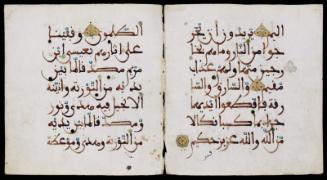 اليم يريدون ان يخر
جوا من النار وما هم بخر
جين منها ولهم عذاب
مقيم والسارق والسا
رقة فاقطعوا ايديهما
جزا بما كسبا نكلا
من الله والله عزيز حكيم
فمن
الظلمون وقفينا
على اثرهم بعيسى ابن
مريم مصدقا لما بين
يديه من التورية واتينه
الانجيل فيه هدى ونور
ومصدقا لما بين يديه
من التورية وهدى وموعظة